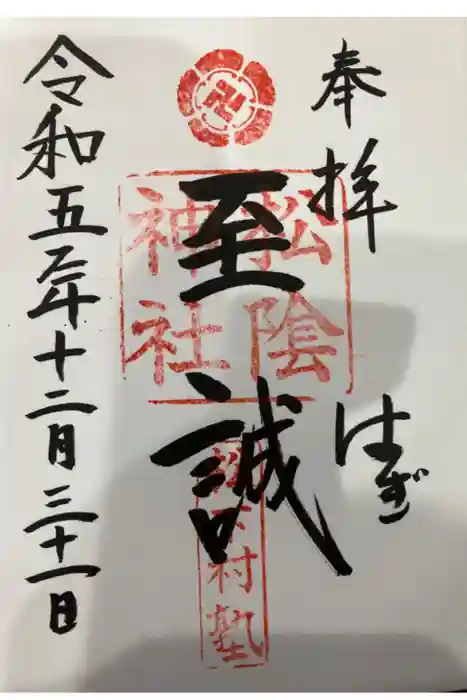 奉拝
はぎ
松陰
神社
至誠
松下村塾
令和五年十二月三十一日